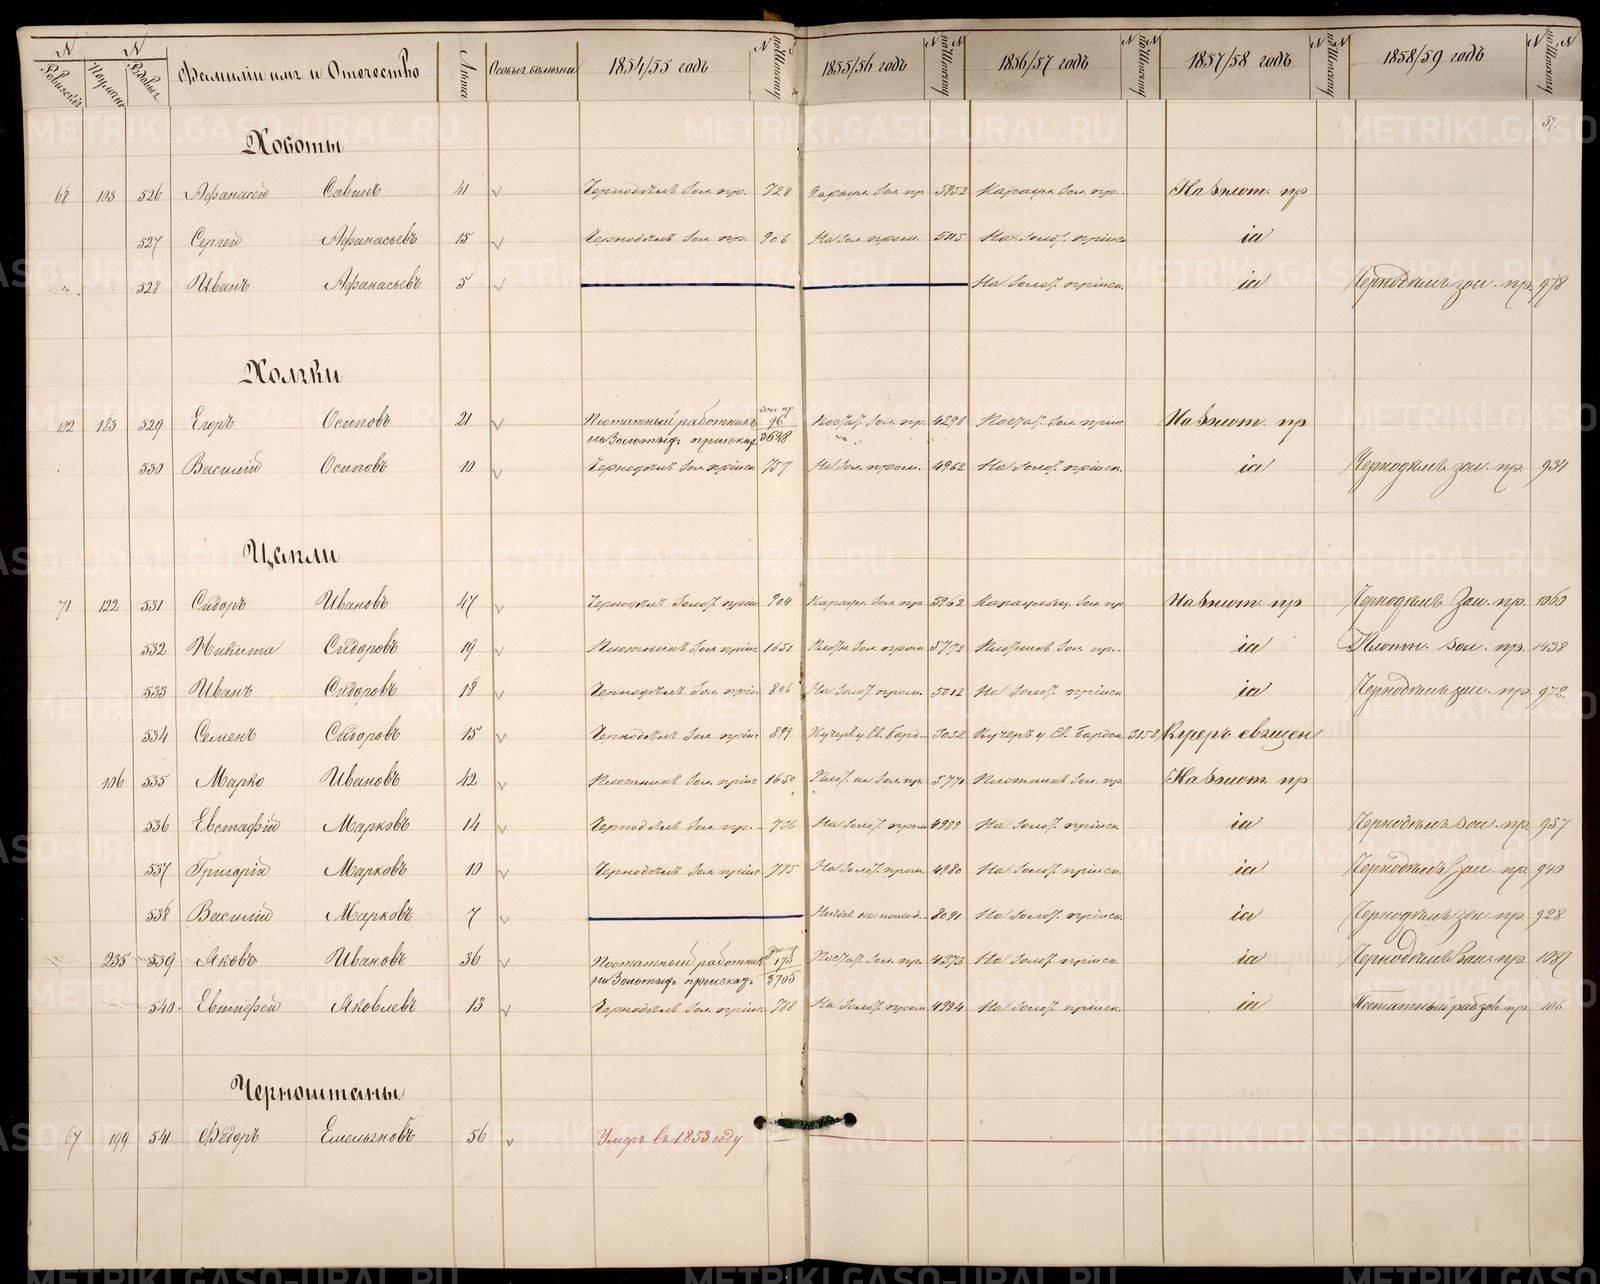 N Ревизскій
N Посемейн
N Рядовые
Фамиліи имя и Отечество
Лѣта
Особыя болѣзни
1854/55 годъ
N по Списку
1855/56 годъ
N по Списку N
1856/57 годъ
N по Списку N
1857/58 годъ
N по Списку N
1858/59 годъ
N по Списку N
57.
Хоботы
68 103 526 Афанасей Савинъ 41 Чернодѣлъ Зол. пр. 728 Зол. пр 5952 Зол. пр. На золот. пр
527 Сергей Афанасьевъ 15 Чернодѣлъ Зол. пр. 906 На Зол. пром. 5115 На Золот. пріиск
528 Иванъ Афанасьевъ 5 На Золот. пріиск. Чернодѣлъ зол. пр. 978
Холжки
102 183 529 Егоръ Осиповъ 21 Постатный работникъ на Золотыхъ пріискахъ 96 3648 Постат. Зол. пр. 4290 Постат. Зол. пріис На золот. пр
530 Василій Осиповъ 10 Чернодѣлъ Зол. пріиск 757 На Зол. пром. 4962 На Золот. пріиск. Чернодѣлъ зол. пр. 934
Цапли
71 122 531 Сидоръ Ивановъ 47 Чернодѣлъ Золот. пріис 904 Зол. пр. 5962 Зол. пр На золот. пр Чернодѣлъ Зол. пр. 1060
532 Никита Сидоровъ 19 Плотникъ Зол. пріис 1651 Плотн. Зол. пром 5772 Плотникъ Зол. пр. Плотн. Зол. пр. 1438
533 Иванъ Сидоровъ 18 Чернодѣлъ Зол. пріи 806 На Золот. пром. 5012 На Золот. пріиск Чернодѣлъ зол. пр. 972
534 Семенъ Сидоровъ 15 Чернодѣлъ Зол. пріис 899 Кучеръ у Св. 5052 Кучеръ у Св. 5158 Кучеръ священ
106 535 Марко Ивановъ 42 Плотникъ Зол. пріис 1650 Плот. на Зол. пр. 5771 Плотникъ Зол. пр На золот. пр
536 Евстафій Марковъ 14 Чернодѣлъ Зол. пр. 736 На Золот. пром 4989 На Золот. пріиск Чернодѣлъ зол. пр. 957
537 Григорій Марковъ 10 Чернодѣлъ Зол. пріис 775 На Золот. пром. 4980 На Золот. пріиск. Чернодѣлъ Зол. пр. 940
538 Василій Марковъ 7 Нигдѣ не наход. 8091 На Золот. пріиск. Чернодѣлъ зол. пр. 928
235 539 Яковъ Ивановъ 36 Постатный работник на Золотыхъ пріискахъ 173 3705 Постат. Зол. пр. 4373 На Золот. пріиск. Чернодѣлъ Зол. пр. 1087
540 Евтифей Яковлевъ 13 Чернодѣлъ Зол. пріис 788 На Золот. пром 4994 На Золот. пріиск. Постатный раб. зол. пр. 106
Черноштаны
67 199 541 Федоръ Емельяновъ 56 Умеръ въ 1853 году
METRIKI.GASO-URAL.RU